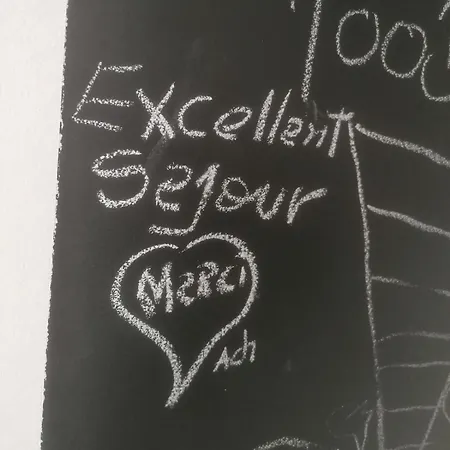 Excellent
Sejour
Merci